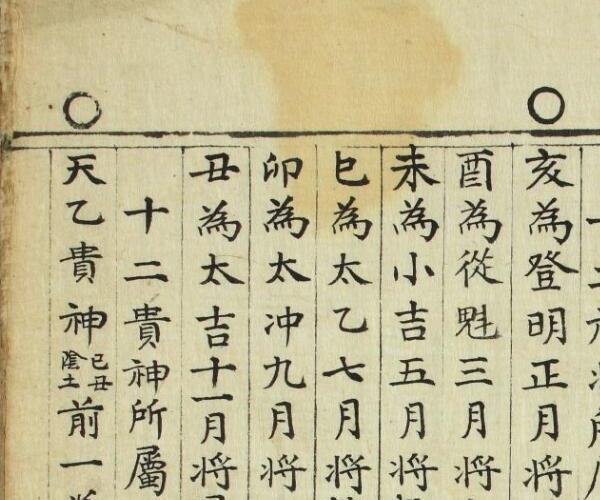 亥為登明正月将
酉為從魁三月将
未為小吉五月将
巳為太乙七月将
卯為太冲九月将
丑為太吉十一月将
十二貴神所屬
天乙貴神己丑陰土前一